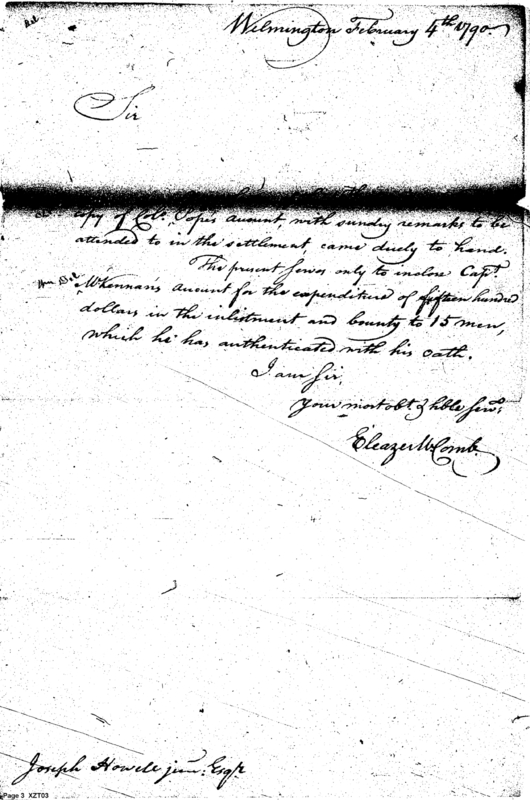 Del
Wilmington February 4th 1790
Sir
copy of Colo. Popes account, with sundry remarks to be
attended to in the settlement came duely to hand.
The present serves only to inclose Capt.
McKennan's account for the expenditure of fifteen hundred
dollars in the inlistment and bounty to 15 men,
which he has authenticated with his oath.
I am Sir,
Your most obt. & hble serv.
Eleazer McComb
Joseph Howell junr. Esqr
Page 3 XZT03